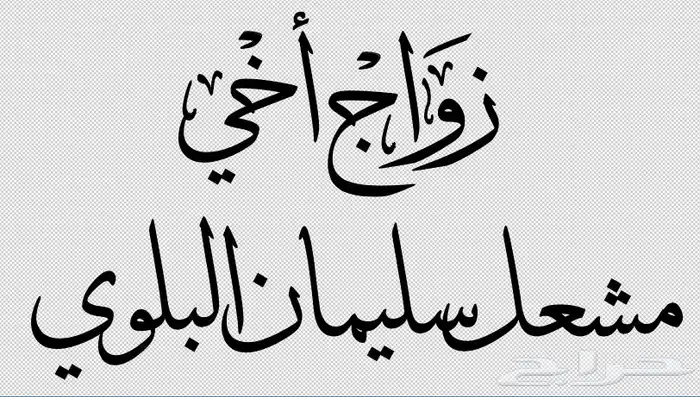 زواج أخي
مشعل سليمان البلوي
حراج